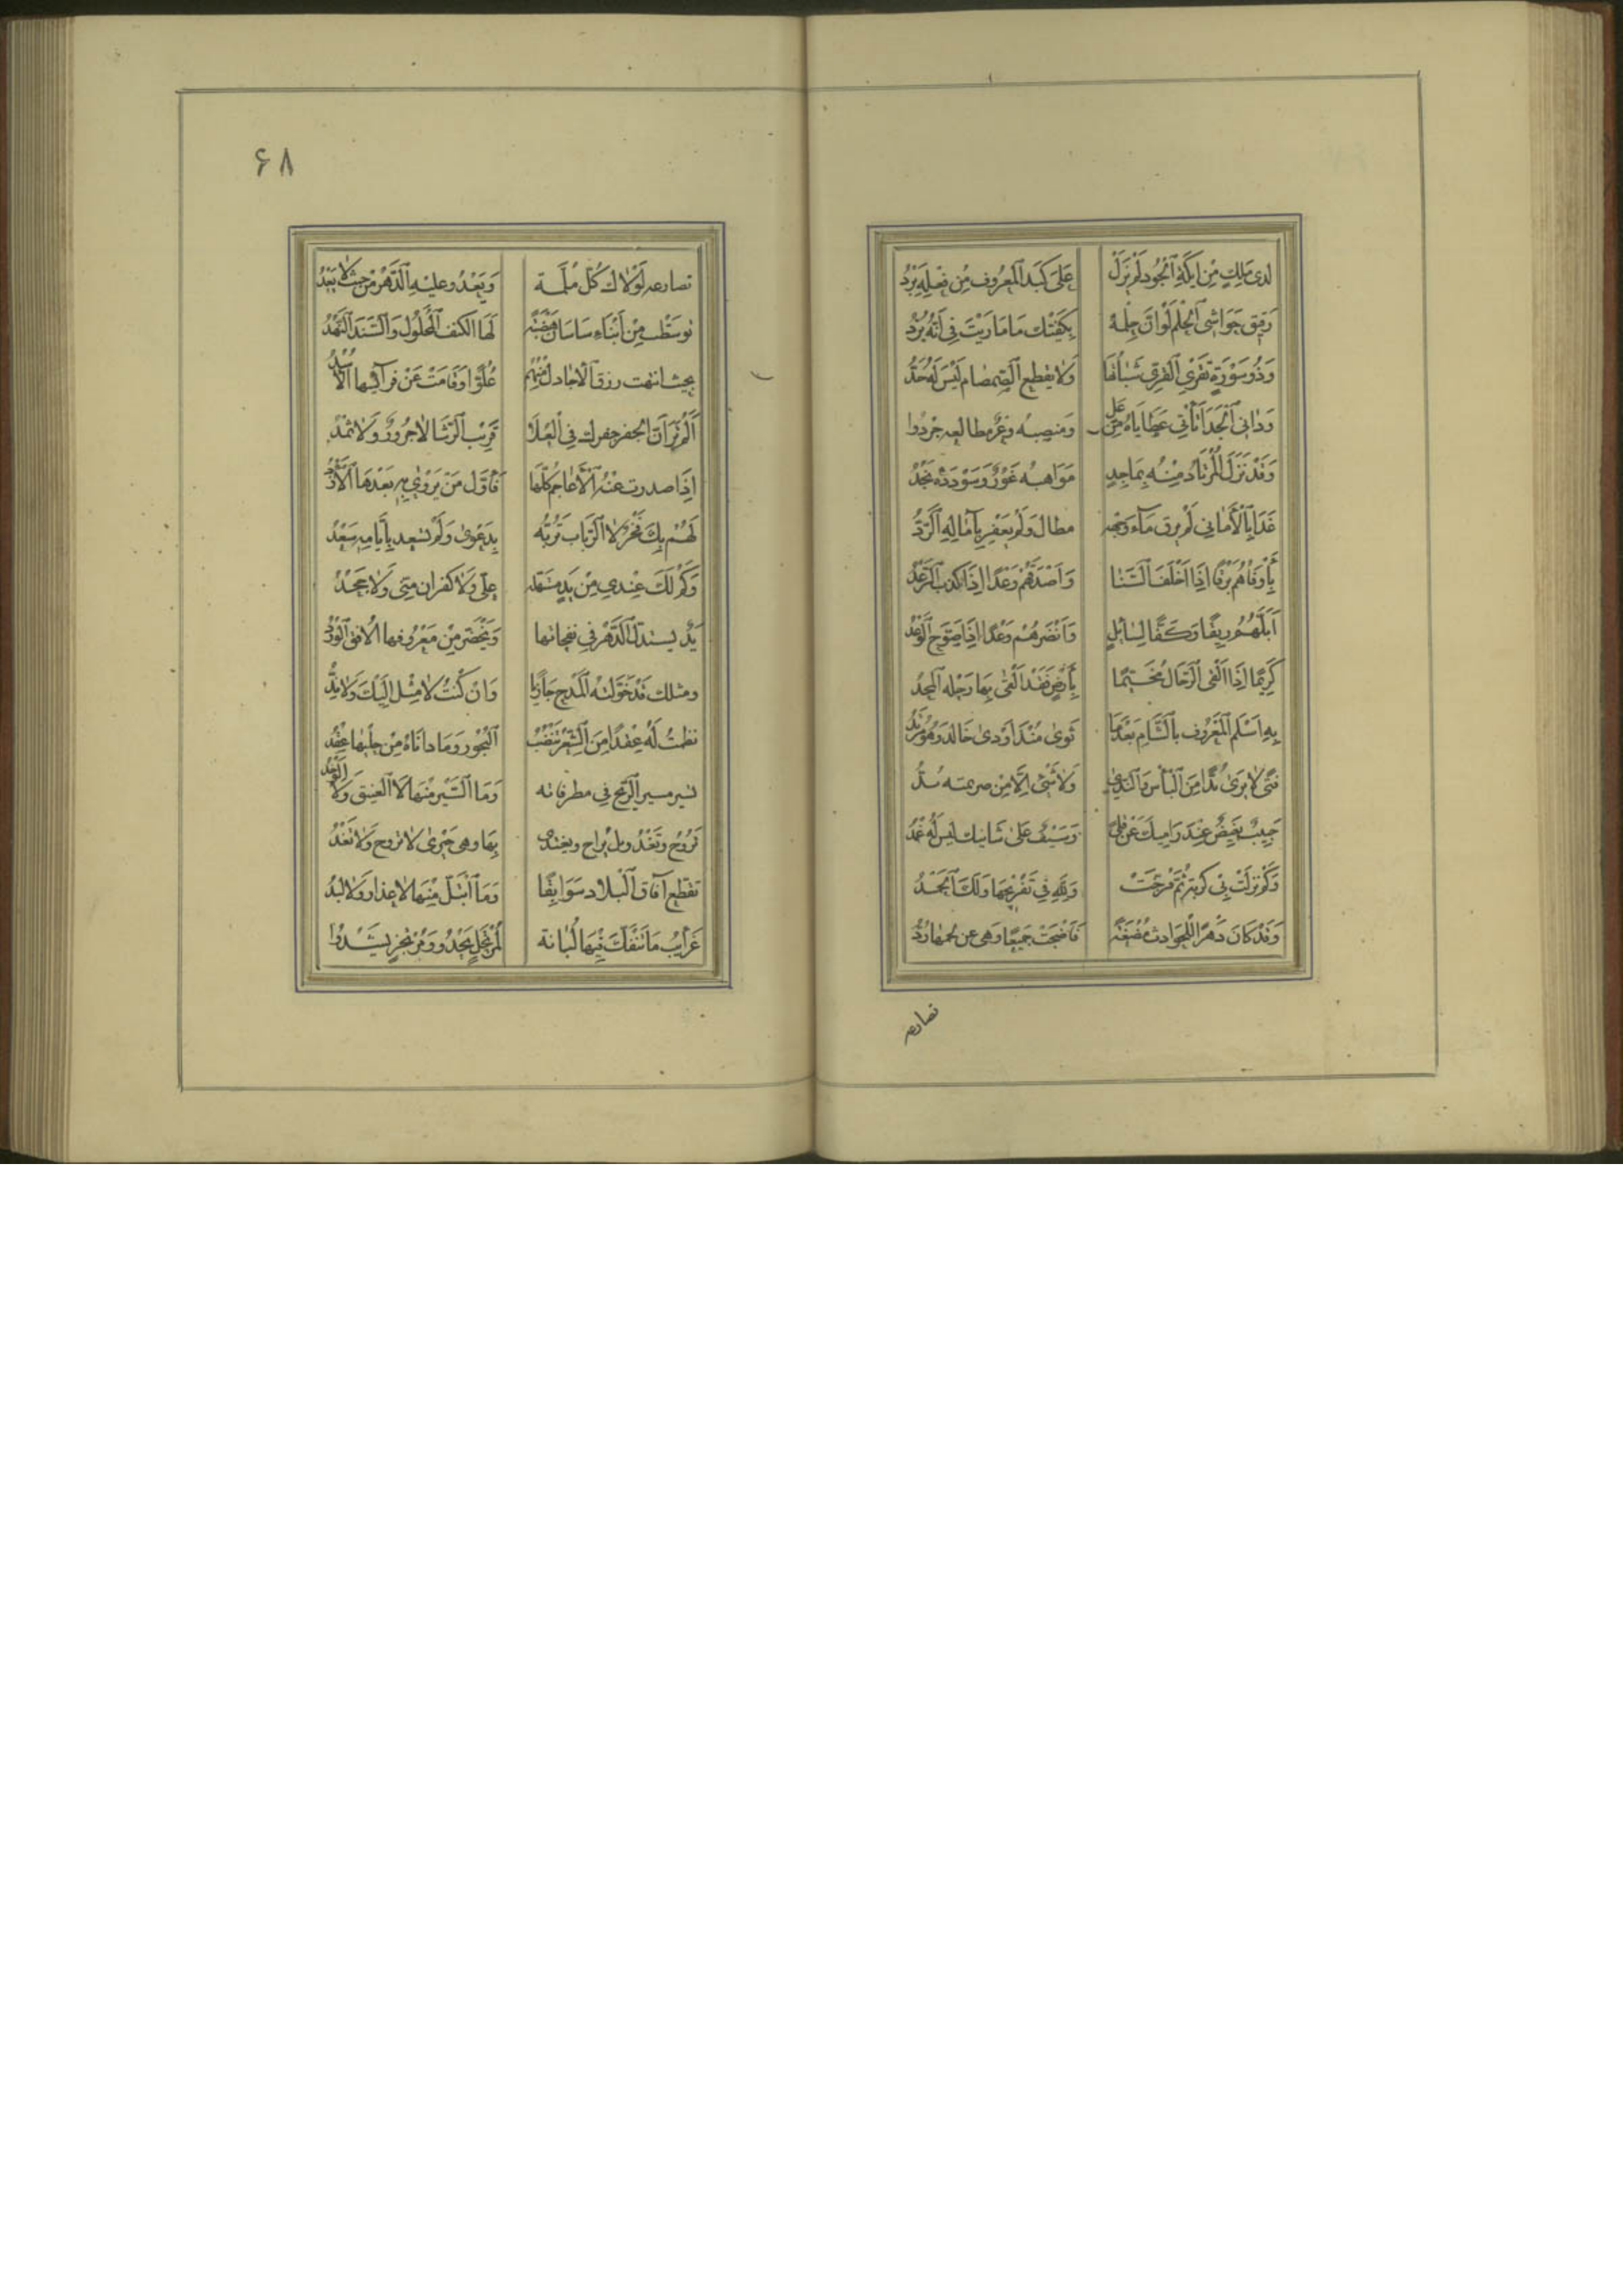 لدى مَلِكٍ مِنْ اَيكَةِ الْجُودِ لَمْ يَزَلْ عَلىَ كَبَدِ الْمَعرُوفِ مِن فِعْلِهِ بَرْدُ
رَقيق حَوَاشِى الْحِلْمِ لَوْ اَنَّ حِلْمَهُ بِكَفَّيْك مَا مَارَيْتَ فِى اَنَّهُ بُرْدُ
وَذُو سَوْرَةٍ تَفْرِي الْفَرِىَّ شَبٰاتُهَا وَلَا يقطع الصمصام لَيْسَ لَهُ حَدُّ
وَدَانِى الْجَدَا تَأْتِي عَطَايَاهُ مِنْ عَلٍ وَمنصبه وَعْرٌ مطالعه جردُ
وَقَدْ نَزَلَ الْمُرْتَادُ مِنْهُ بِمَاجِدٍ مَوَاهِبُه غَوْرٌ وَسَوْددُهُ نَجْدُ
غَدَا بِالْأَمَانِي لَمْ يرق مَآء وَجْهِهِ مطال وَلَمْ يَقْعُدْ بِآمَالِهِ الرَّدُّ
بِأَوْفَاهُمْ بَرْقًا اِذَا اَخْلَفَ السَّنَا وَاَصْدَقِهُمْ رَعْدًا اِذَا كَذبَ الرَّعْدُ
اَبَلِّهُمُ رِيقًا وَكَفًّا لِسَائِلٍ وَاَنْضَرِهُمْ وَعْدًا اِذَا صَوَّحَ الْوَعْدُ
كَرِيمًا اِذَا اَلْقَى الرِّحَال مُخَيِّمًا بِأَرْضٍ فَقَدْ اَلْقَى بِهَا رَحْلَه الْمَجْدُ
بِهِ اَسْلَمَ الْمَعْرُوف بِالشَّامِ بَعْدَمَا ثَوى مُنْذُ اَوْدى خَالد وَهْوَ مُرْتَدُّ
فتًى لَا يَرَى بُدًّا مِنَ الْبَأْسِ وَالنَّدى وَلَا شَىْءَ اِلَّا مِنْ
حَبِيبٌ بَغِيضٌ عِنْدَ رَامِيكَ عَنْ قِلًى وَسَيْفٌ عَلىٰ شَانيك لَيس لَهُ غِمْدُ
وَكَمْ نَزَلَتْ بِى كُرْبَةٌ ثُمَّ فُرِّجَتْ وَلِلّٰهِ فِي تَفْرِيجِهَا وَلَكَ الْحَمْدُ
وَقَدْ كَانَ دَهْرًا لِلْحَوَادِثِ مُضْغَةً فَأَضْحَتْ جَمِيعًا وَهى عن لحمهَا دُرْدُ
تصارعه
۶۸
تصارعه لَوْلَاك كُلُّ مُلِمَّة وَيَعْدُو عليْهِ الدَّهْرُ مِنْ حَيْثُ لَا يَعْدُو
توسَّطْت مِنْ اَبْنَاءِ سَاسَان هَضْبَةً لَهَا الكنف الْمَحْلُول وَالسَّنَد النَّهْدُ
بحيث انتهت زرق الاجادل مِنْهُم عُلُوًّا وَقَامَتْ عَنْ فرآئسِها الْاُسْدُ
اَلَمْ تَرَ اَنَّ الجفر جفرك فِى الْعُلَا قَرِيب الرِّشَا لَا جَرُورٌ وَلَا ثَمْدُ
اِذَا صدرت عَنْهُ الْأَعَاجِمُ كُلُّهَا فَأَوَّل مَنْ يُرْوٰى بِهِ بَعْدَهَا الْأَزْدُ
لَهُمْ بِكَ فَخْرٌ لَا الرِّبَاب تَرُبُّه بِدَعْوىٰ وَلَمْ تسعد بِأَيَّامِهِ سَعْدُ
وَكَمْ لَكَ عِنْدِي مِنْ يَدٍ مستهلة عَلَىَّ وَلَا كفران مِنِّي وَلَا جَحْدُ
يَدٌ يستذلّ الدَّهْر فِى نفحاتها وَيَخْضَرّ مِنْ مَعْرُوفِهَا الْاُفق الْوَرْدُ
ومثلك قَدْ خَوَّلْتُهُ الْمَدْحَ جَازِيًا وَاِنْ كُنْتُ لَا مِثْلٌ اِلَيْكَ وَلَا نِدُّ
نظمتُ لَهُ عِقْدًا مِنَ الشِّعْرِ تَنْضُبُ الْبُحُور وَمَا دَانَاهُ مِنْ حَلْيِهَا عِقْدُ
تسير مسير الرِّيحِ فى مطرفاته وَمَا السَّيْرُ مِنْهَا لَا الْعَنِيقُ وَلَا الْوَخْدُ
تَرُوحُ وَتَغْدُو بل يُرَاح ويغتدى بِهَا وهى حَيْرَى لَا تروح وَلَا تَغْدُو
تقطّع آفَاق الْبلاد سَوَابِقًا وَمَا ابْتَلَّ مِنْهَا لَا عِذار وَلَا لِبْدُ
غَرَآئِبُ مَا تَنْفَكّ فِيهَا لُبَانَة لِمُرْتَجِلٍ يَحْدُو وَمُرْتَجِزٍ يَشْدُو